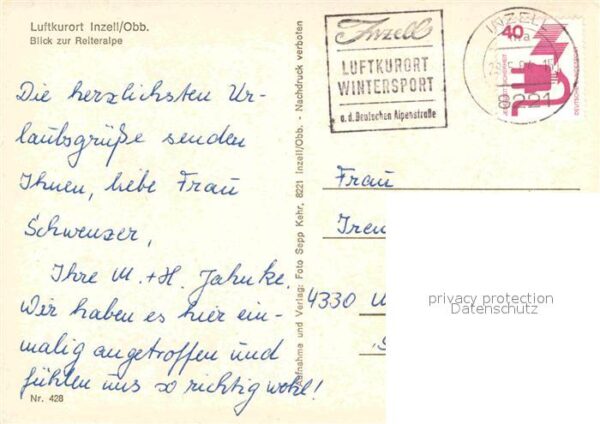 Luftkurort Inzell/Obb.
Blick zur Reiteralpe
Die herzlichsten Ur-
laubsgrüße senden
Ihnen, liebe Frau
Schwenzer,
Ihre M. + H. Jahnke.
Wir haben es hier ein-
malig angetroffen und
fühlen uns so richtig wohl!
Nr. 428
Aufnahme und Verlag: Foto Sepp Kehr, 8221 Inzell/Obb. - Nachdruck verboten
Inzell
LUFTKURORT
WINTERSPORT
a. d. Deutschen Alpenstraße
INZELL
8221
40
DEUTSCHE BUNDESPOST
Frau
Iren
4330
privacy protection
Datenschutz